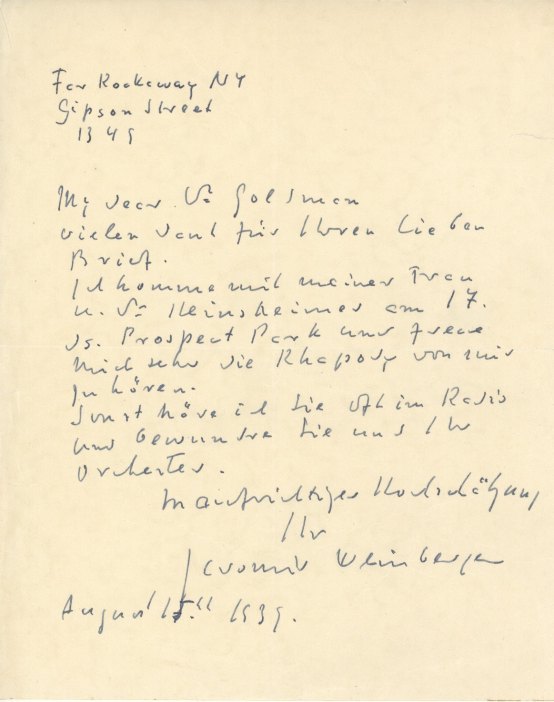 Far Rockaway NY
Gipson Street
1349
My dear Dr Goldman
vielen Dank für Ihren lieben
Brief.
Ich komme mit meiner Frau
u. Dr Heinsheimer am 17.
ds. Prospect Park und freue
mich sehr die Rhapsody von mir
zu hören.
Sonst höre ich Sie oft im Radio
und bewundre Sie und Ihr
Orchester.
In aufrichtiger Hochschätzung
Ihr
Jaromir Weinberger
August 15.th 1939.